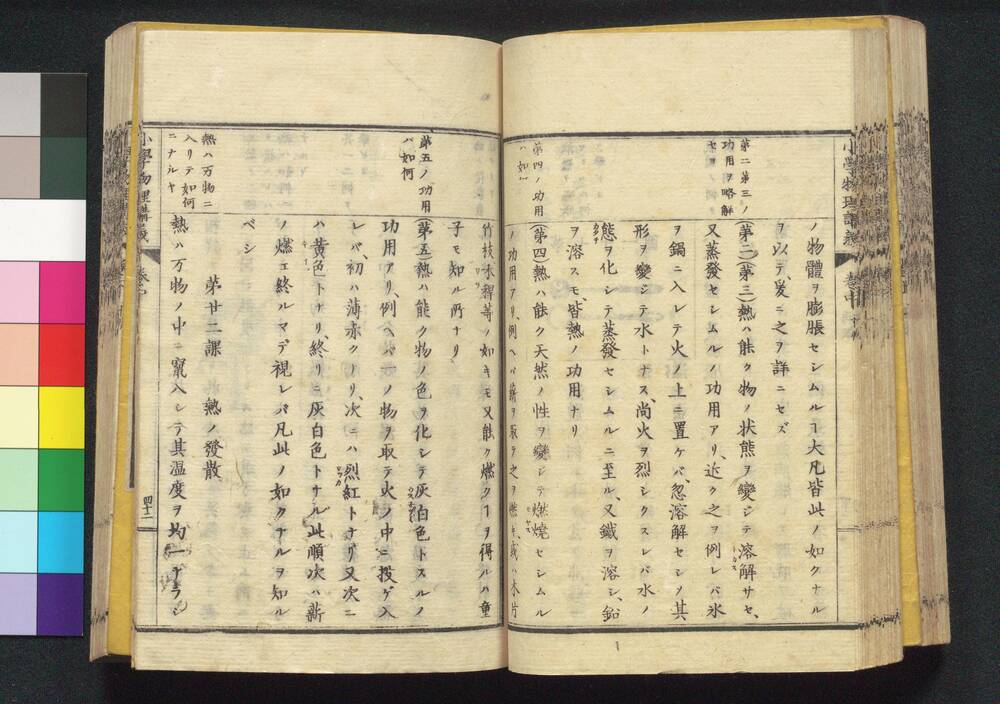 小學物理講義
卷中
第二第三ノ
功用ヲ略解
セヨ
ノ物體ヲ膨脹セシムルヿ大凡皆此ノ如クナル
ヲ以テ、爰ニ之ヲ詳ニセズ
(第二)(第三)熱ハ能ク物ノ状態ヲ變シテ溶解サセ、
又蒸發セシムルノ功用アリ、近ク之ヲ例レバ氷
ヲ鍋ニ入レテ火ノ上ニ置ケバ、忽溶解セシメ其
形ヲ變シテ水トナス、尚火ヲ烈シクスレバ水ノ
態ヲ化シテ蒸發セシムルニ至ル、又鐵ヲ溶シ、鉛
ヲ溶スモ、皆熱ノ功用ナリ
第四ノ功用
ハ如何
(第四)熱ハ能ク天然ノ性ヲ變シテ燃燒セシムル
ノ功用アリ、例ヘバ薪ヲ取テ之ヲ燃キ、或ハ木片
竹枝禾稈等ノ如キモ又能ク燃クヿヲ得ルハ童
子モ知ル所ナリ
第五ノ功用
ハ如何
(第五)熱ハ能ク物ノ色ヲ化シテ灰白色トスルノ
功用アリ、例ヘバ一ノ物ヲ取テ火ノ中ニ投ゲ入
レバ、初ハ薄赤クナリ、次ニハ烈紅トナリ、又次ニ
ハ黄色トナリ、終リニ灰白色トナル、此順次ハ薪
ノ燃エ終ルマデ視レバ凡此ノ如クナルヲ知ル
ベシ
第廿二課 熱ノ發散
熱ハ万物ニ
入リテ如何
ニナルヤ
熱ハ万物ノ中ニ竄入シテ其温度ヲ均一ナラシ
小學物理講義
卷之中
四十二